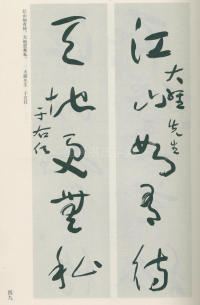 江山如有待
大維先生
天地更無私
于右任
四九